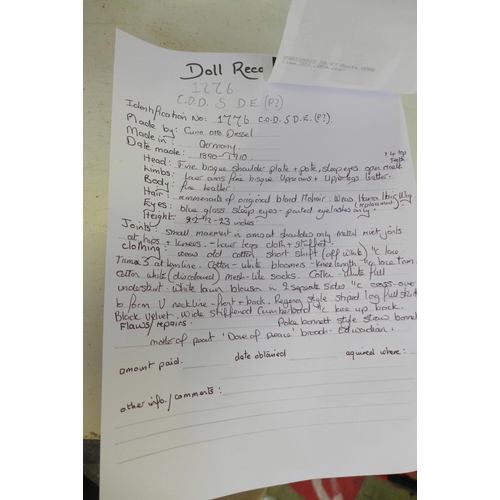 Doll Reco
1776
C.O.D. 5 D.E. (P?)
Identification No: 1776 C.O.D. 5 D.E. (P?)
Made by: Cuno Otto Dressel
Made in: Germany
Date made: 1890-1910
Head: Fine bisque shoulder plate + pate, sleep eyes open mouth + 4 top teeth
Limbs: lower arms fine bisque Upper arms + Upper legs leather
Body: fine leather
Hair: remnerants of original blond Mohair. Wears Human Hair Wig (replacement)
Eyes: blue glass sleep eyes - painted eyelashes only
Height: 22½ - 23 inches
Joints: Small movement in arms at shoulders only metal rivet joints
at hips + knees. - lower legs cloth + stuffed.
clothing: wears old cotton short shift (off white) "c lace
Trims at hemline. Cotton - white bloomers - knee length "c lace trim.
cotton white (discoloured) mesh-like socks. Cotton - white full
underskirt. White lawn blouson in 2 separate sides "c cross-over
to form V neckline - front + back. Regency style striped long full skirt
Black Velvet. Wide stiffened Cumberband "c lace up back.
Flaws/repairs. Poke bonnett style straw bonnet
mother of pearl 'Dove of peace' brooch - Edwardian.
amount paid: date obtained aquired where:
other info./comments: